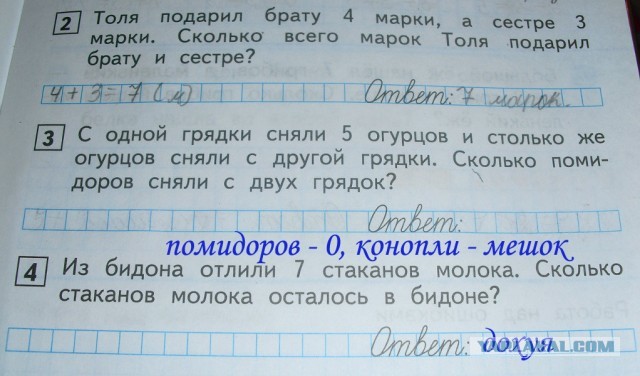 2 Толя подарил брату 4 марки, а сестре 3
марки. Сколько всего марок Толя подарил
брату и сестре?
4 + 3 = 7 (м) Ответ: 7 марок.
3 С одной грядки сняли 5 огурцов и столько же
огурцов сняли с другой грядки. Сколько поми-
доров сняли с двух грядок?
Ответ:
помидоров - 0, конопли - мешок
4 Из бидона отлили 7 стаканов молока. Сколько
стаканов молока осталось в бидоне?
Ответ: дохуя